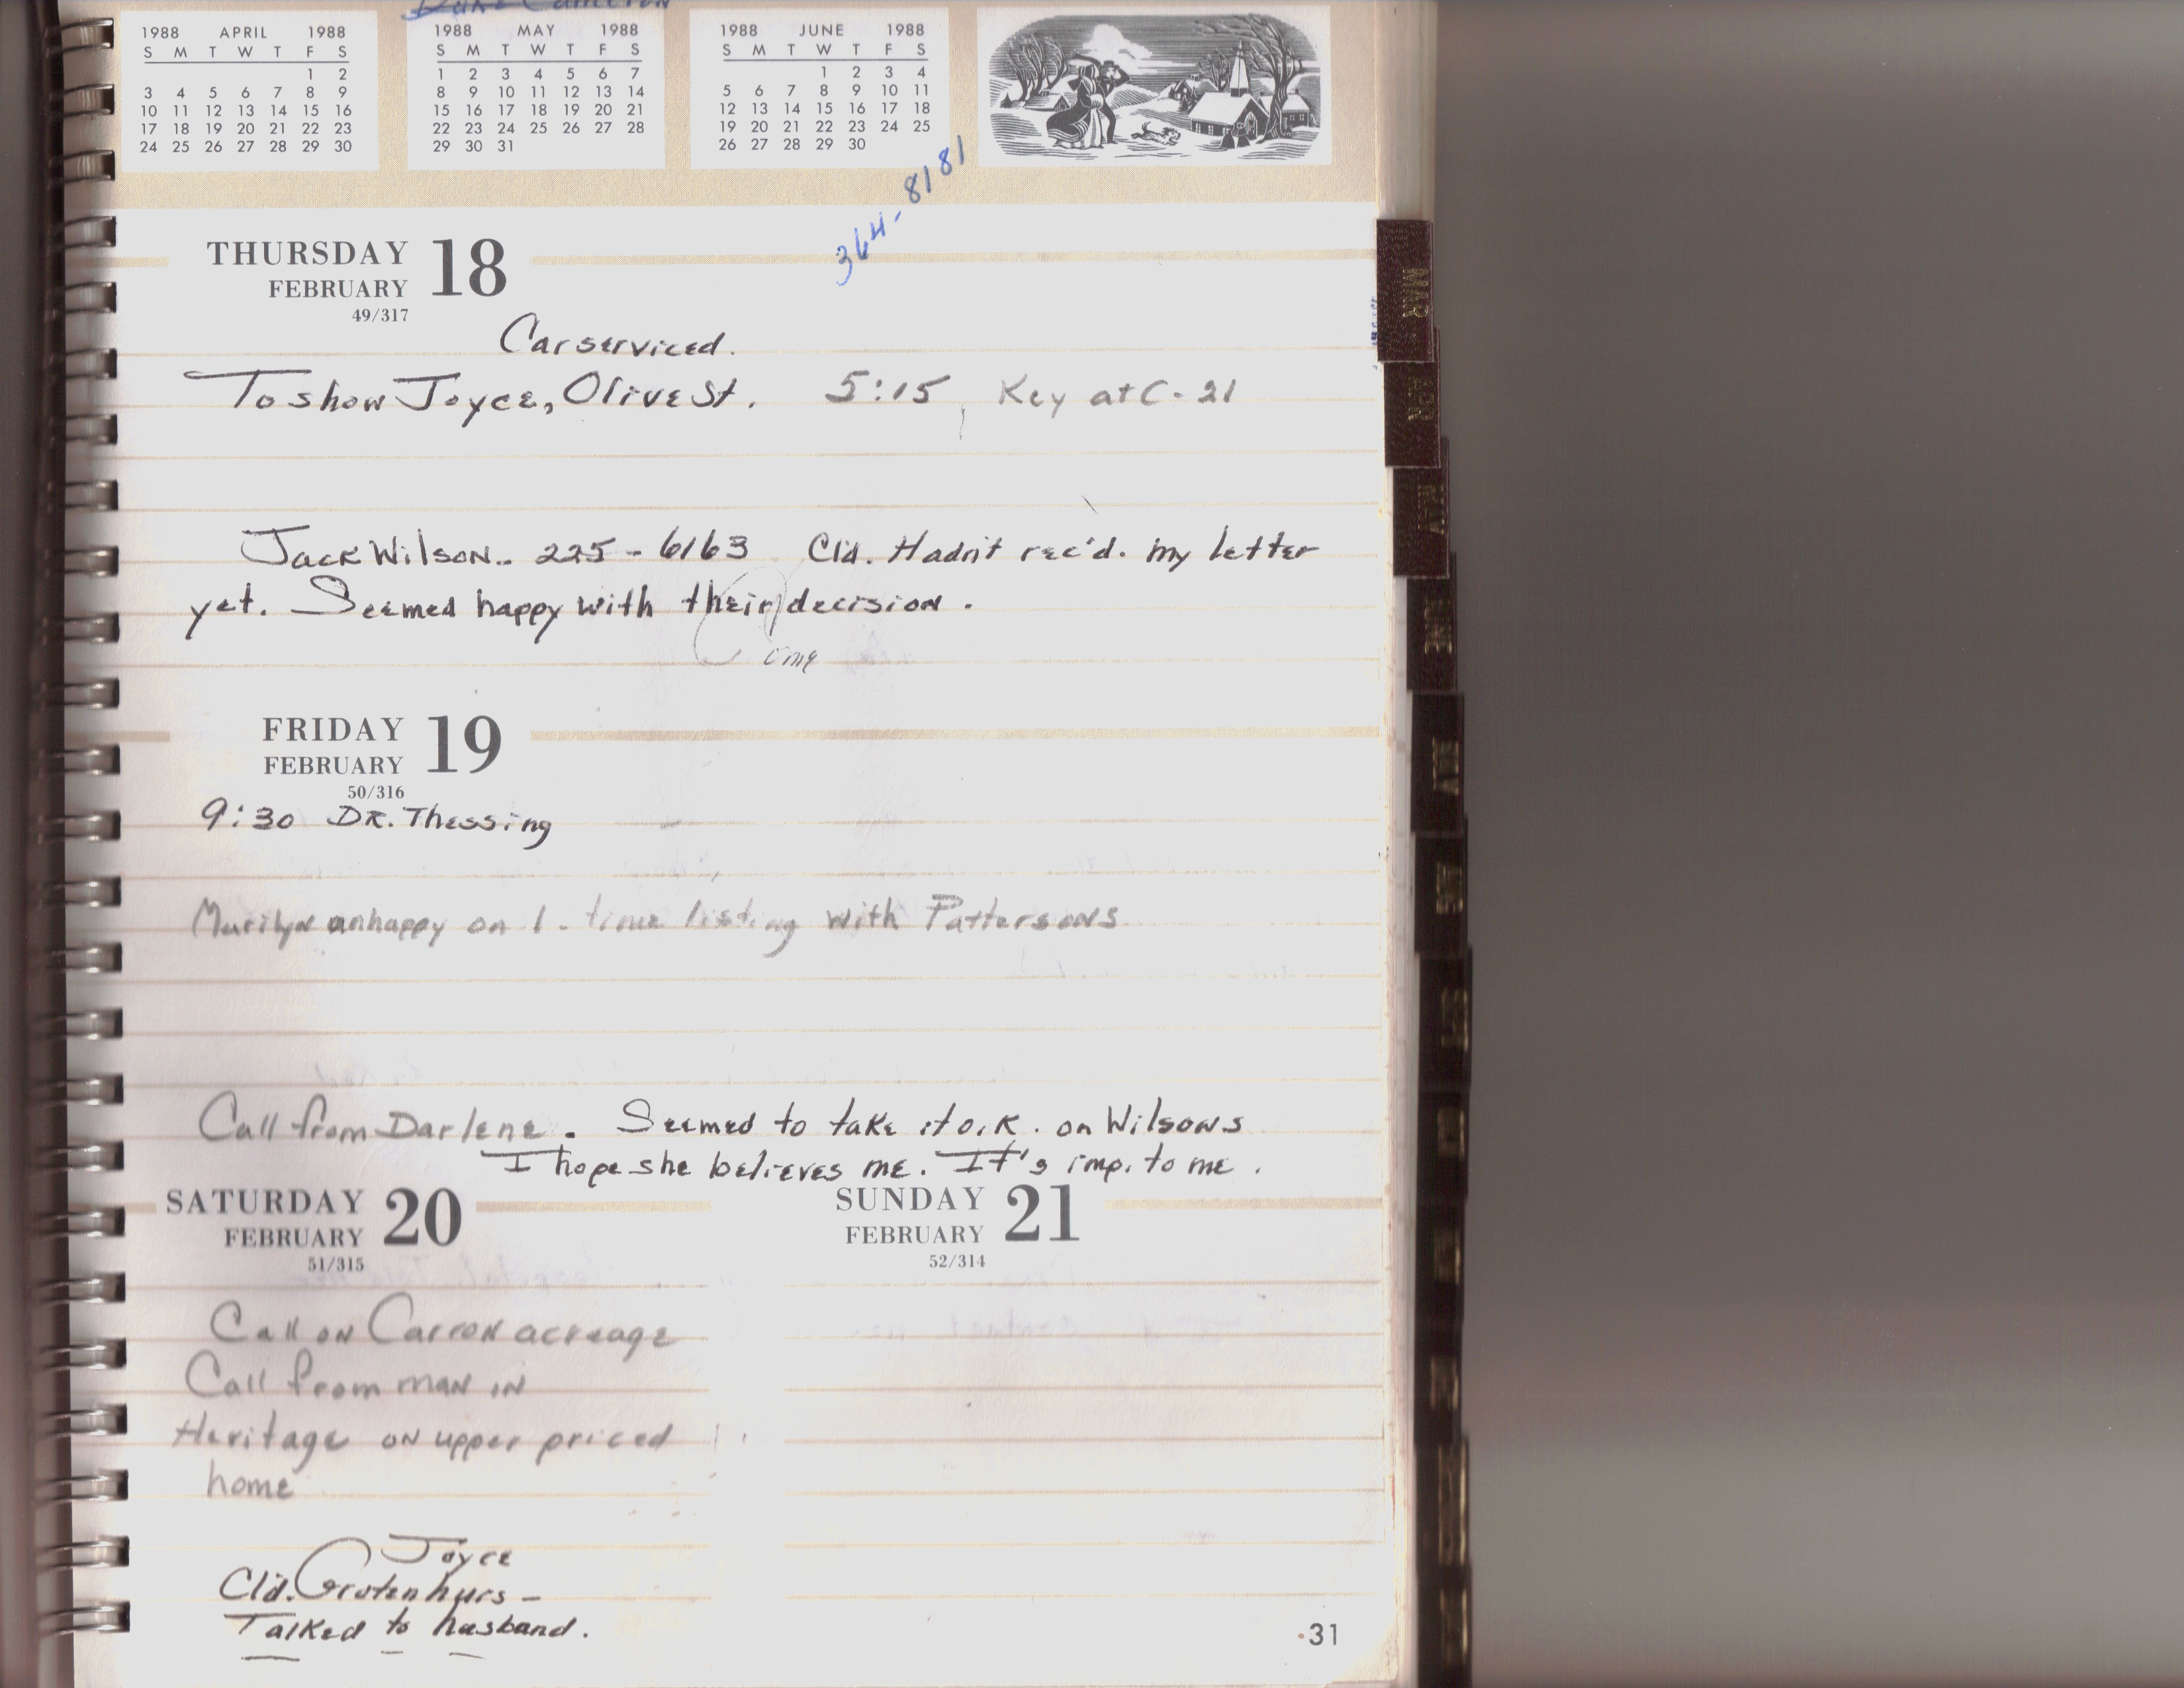 Duke Cameron
1988 APRIL 1988
S M T W T F S
1 2
3 4 5 6 7 8 9
10 11 12 13 14 15 16
17 18 19 20 21 22 23
24 25 26 27 28 29 30
1988 MAY 1988
S M T W T F S
1 2 3 4 5 6 7
8 9 10 11 12 13 14
15 16 17 18 19 20 21
22 23 24 25 26 27 28
29 30 31
1988 JUNE 1988
S M T W T F S
1 2 3 4
5 6 7 8 9 10 11
12 13 14 15 16 17 18
19 20 21 22 23 24 25
26 27 28 29 30
364-8181
THURSDAY 18
FEBRUARY
49/317
Car serviced.
To show Joyce, Olive St. 5:15, Key at C-21
Jack Wilson.. 225-6163 Cld. Hadn't rec'd. my letter
yet. Seemed happy with their decision.
FRIDAY 19
FEBRUARY
50/316
9:30 DR. Thessing
Marilyn unhappy on 1-time listing with Pattersons
Call from Darlene. Seemed to take it o.k. on Wilsons
I hope she believes me. It's imp. to me.
SATURDAY 20
FEBRUARY
51/315
Call on Carron acreage
Call from man in
Heritage on upper priced
home
Joyce
Cld. Grotenhurs -
Talked to husband.
SUNDAY 21
FEBRUARY
52/314
31
MAR
APR
MAY
JUNE